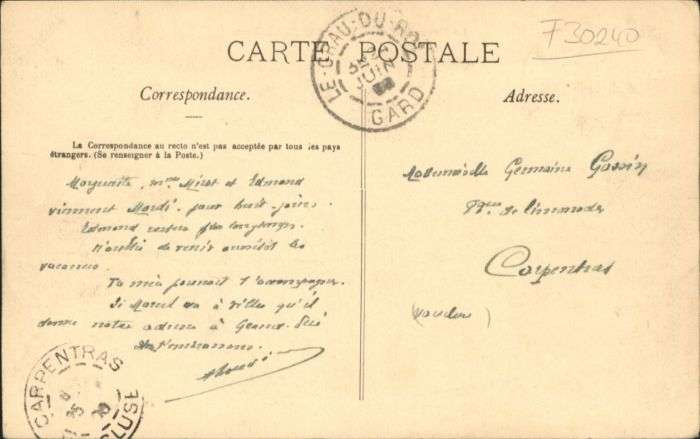 F30240
CARTE POSTALE
LE-GRAU-DU-ROI
JUIN
GARD
Correspondance.
Adresse.
La Correspondance au recto n'est pas acceptée par tous les pays
étrangers. (Se renseigner à la Poste.)
Marguerite, Mme Miret et Edmond
viennent Mardi pour huit jours
Edmond restera plus longtemps.
N'oublie de venir aussitôt les
vacances.
Ta mère pourrait t'accompagner.
Si Marcel va à Villes qu'il
donne notre adresse à
Mademoiselle Germaine Gossin
Carpentras
(Vaucluse)
CARPENTRAS
CLUSE